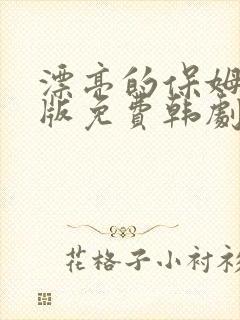 漂亮的保姆
版免費韩劇
花格子小衬衫